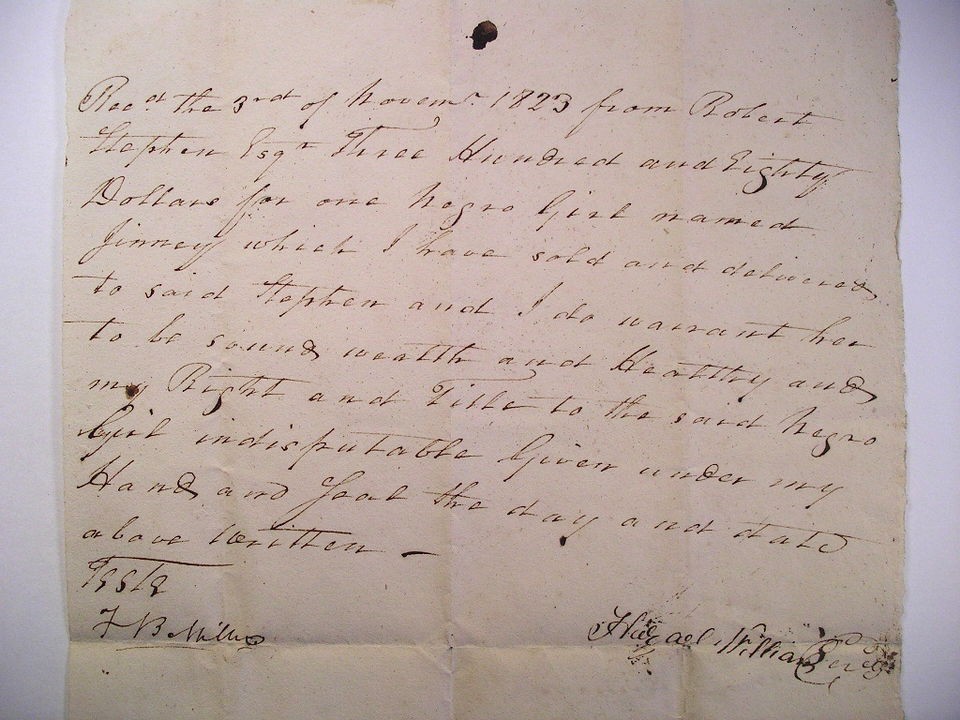 Recd the 3rd of Novemr 1823 from Robert
Stephen Esqr Three Hundred and Eighty
Dollars for one Negro Girl named
Jinney which I have sold and delivered
to said Stephen and I do warrant her
to be sound wealth and Healthy and
my Right and Title to the said Negro
Girl indisputable Given under my
Hand and Seal the day and date
above written —
Teste
William